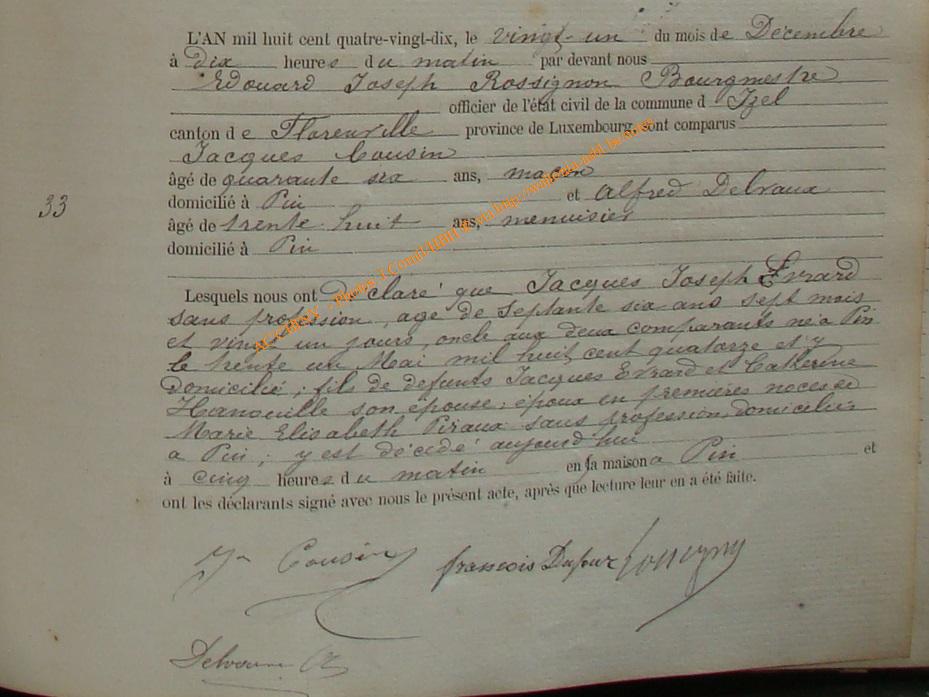 L'AN mil huit cent quatre-vingt-dix, le vingt-un du mois de Décembre
à dix heures du matin par devant nous
Edouard Joseph Rossignon Bourgmestre
officier de l'état civil de la commune d Izel
canton de Florenville province de Luxembourg, sont comparus
Jacques Cousin
âgé de quarante six ans, maçon
33
domicilié à Pin et Alfred Delvaux
âgé de trente huit ans, menuisier
domicilié à Pin
Lesquels nous ont Déclaré que Jacques Joseph Evrard
sans profession, age de Septante six ans sept mois
et vingt un jours, oncle aux deux comparants né a Pin
le trente un Mai mil huit cent quatorze et y
domicilié ; fils de defunts Jacques Evrard et Catherine
Hanouille son épouse ; époux en premières noces de
Marie Elisabeth Piraux sans profession, domiciliée
a Pin ; y est décédé aujourd'hui
à cinq heures du matin en sa maison a Pin et
ont les déclarants signé avec nous le présent acte, après que lecture leur en a été faite.
Cousin françois Dufour